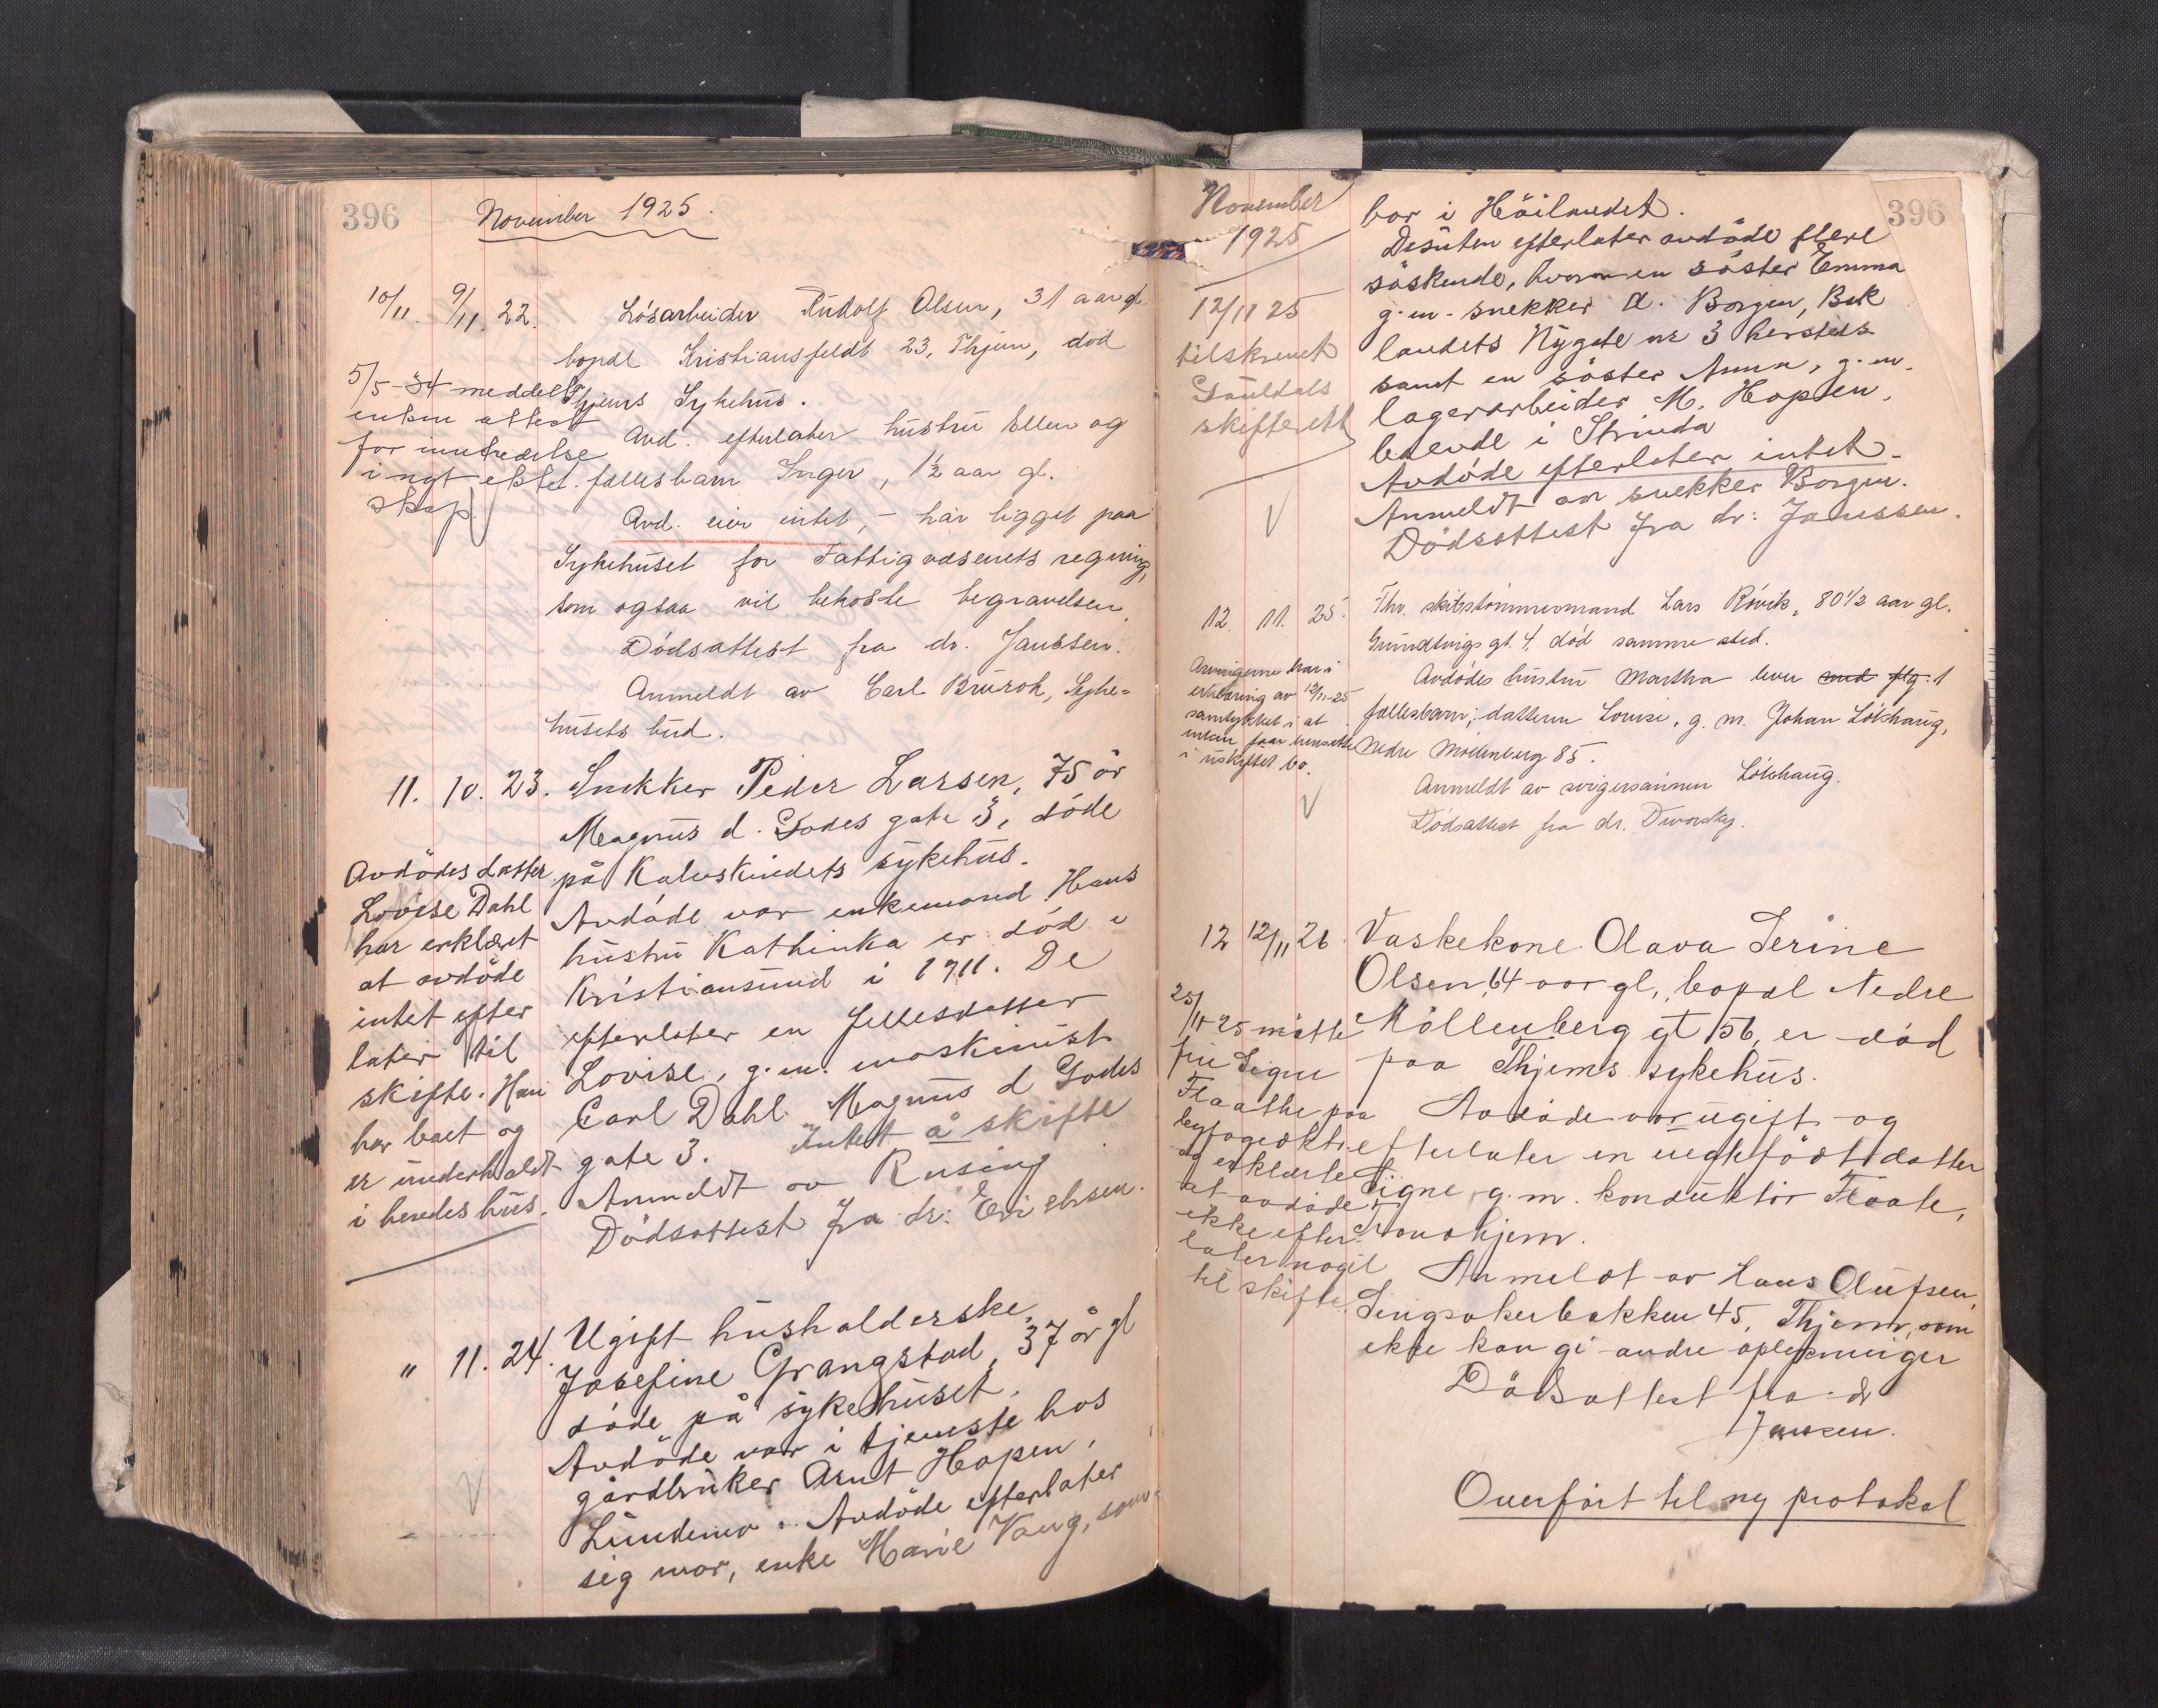 396
November 1925.
10/11. 9/11. 22. Løsarbeider Rudolf Olsen, 31 aar gl.
bopæl Kristiansfeldt 23, Thjem, død
Thjems Sykehus.
5/5-34 meddelt
enken attest
for inntredelse
i nyt ekte-
skap.
Avd. efterlater hustru Ellen og
fællesbarn Inger, 1½ aar gl.
Avd. eier intet, - har ligget paa
Sykehuset for Fattigvæsenets regning,
som ogsaa vil bekoste begravelsen.
Dödsattest fra dr. Janssen.
Anmeldt av Carl Brurok, Syke=
husets bud.
11. 10. 23. Snekker Peder Larsen, 75 år
Magnus d. Godes gate 3, döde
på Kalvskindets sykehus.
Avdöde var enkemand. Hans
hustru Kathinka er död i
Kristiansund i 1911. De
efterlater en fellesdatter
Lovise, g.m. maskinist
Carl Dahl Magnus d Godes
gate 3. Intet å skifte
Anmeldt av Rusing
Dödsattest fra dr: Erichsen.
Avdödes datter
Lovise Dahl
har erklæret
at avdöde
intet efter
later til
skifte. Han
har boet og
er underholdt
i hendes hus.
" 11. 24. Ugift husholderske,
Josefine Grangstad, 37 år gl
döde på sykehuset.
Avdöde var i tjeneste hos
gårdbruker Arnt Hopen,
Lundemo. Avdöde efterlater
sig mor, enke Marie Vang, som
November
1925
396
bor i Höilandet.
Desuten efterlater avdöde flere
söskende, hvorav en söster Emma
g.m. snekker A. Borgen, Bak
landets Nygate nr 3 hersteds
samt en söster Anna, g.m.
lagerarbeider M. Hopsen,
boende i Strinda
Avdöde efterlater intet.
Anmeldt av snekker Borgen.
Dödsattest fra dr: Janssen.
12/11 25
tilskrevet
Gauldals
skifterett
12. 11. 25. Fhv. skibstømmermand Lars Rövik, 80½ aar gl.
Grundtvigs gt. 4, död samme sted.
Avdödes hustru Martha lever med flg. 1
fællesbarn; datteren Louise, g. m. Johan Lökhaug,
Nedre Möllenberg 85.
Anmeldt av svigersønnen Lökhaug.
Dödsattest fra dr. Dworsky.
Arvingerne har i
erklæring av 12/11-25
samtykket i at
enken faar hensitte
i uskiftet bo.
12 12/11 26. Vaskekone Olava Serine
Olsen, 64 aar gl., bopæl Nedre
Möllenberg gt 56, er död
paa Thjems sykehus.
Avdöde var ugift og
efterlater en uegte född datter
Signe, g.m. konduktör Flaate,
Tronhjem.
Anmeldt av Hans Olufsen,
Singsakerbakken 45, Thjem, som
ikke kan gi andre oplysninger
Dödsattest fra dr
Jansen.
25/11-25 mötte
fru Signe
Flaathe paa
byfogedktr.
og erklærte
at avdöde
ikke efter-
later noget
til skifte.
Overfört til ny protokol